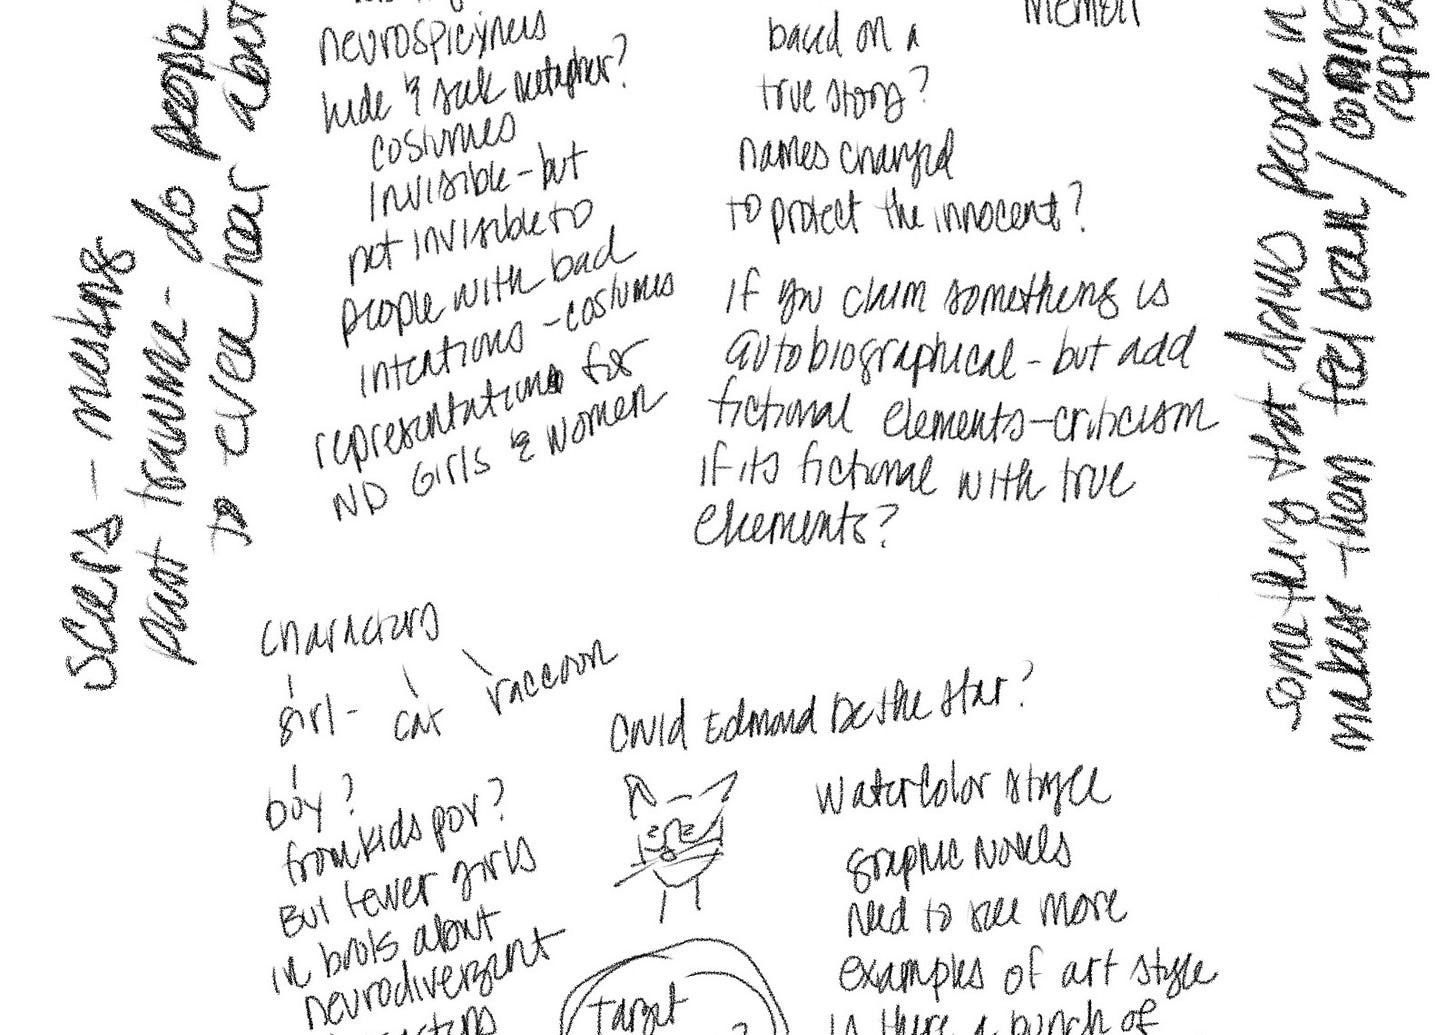 Scars - masking
past trauma - do people
to even hear about
neurospicyness
hide & seek metaphor?
costumes
invisible - but
not invisible to
people with bad
intentions - costumes
representations for
ND Girls & Women
Memoir
based on a
true story?
names changed
to protect the innocent?
if you claim something is
autobiographical - but add
fictional elements - criticism
if its fictional with true
elements?
something that draws people in
makes them feel seen /
characters
girl - cat raccoon
boy?
from kids pov?
But fewer girls
in books about
neurodivergent
Could Edmond be the star?
Target
?
watercolor style
graphic novels
need to see more
examples of art style
is there a bunch of